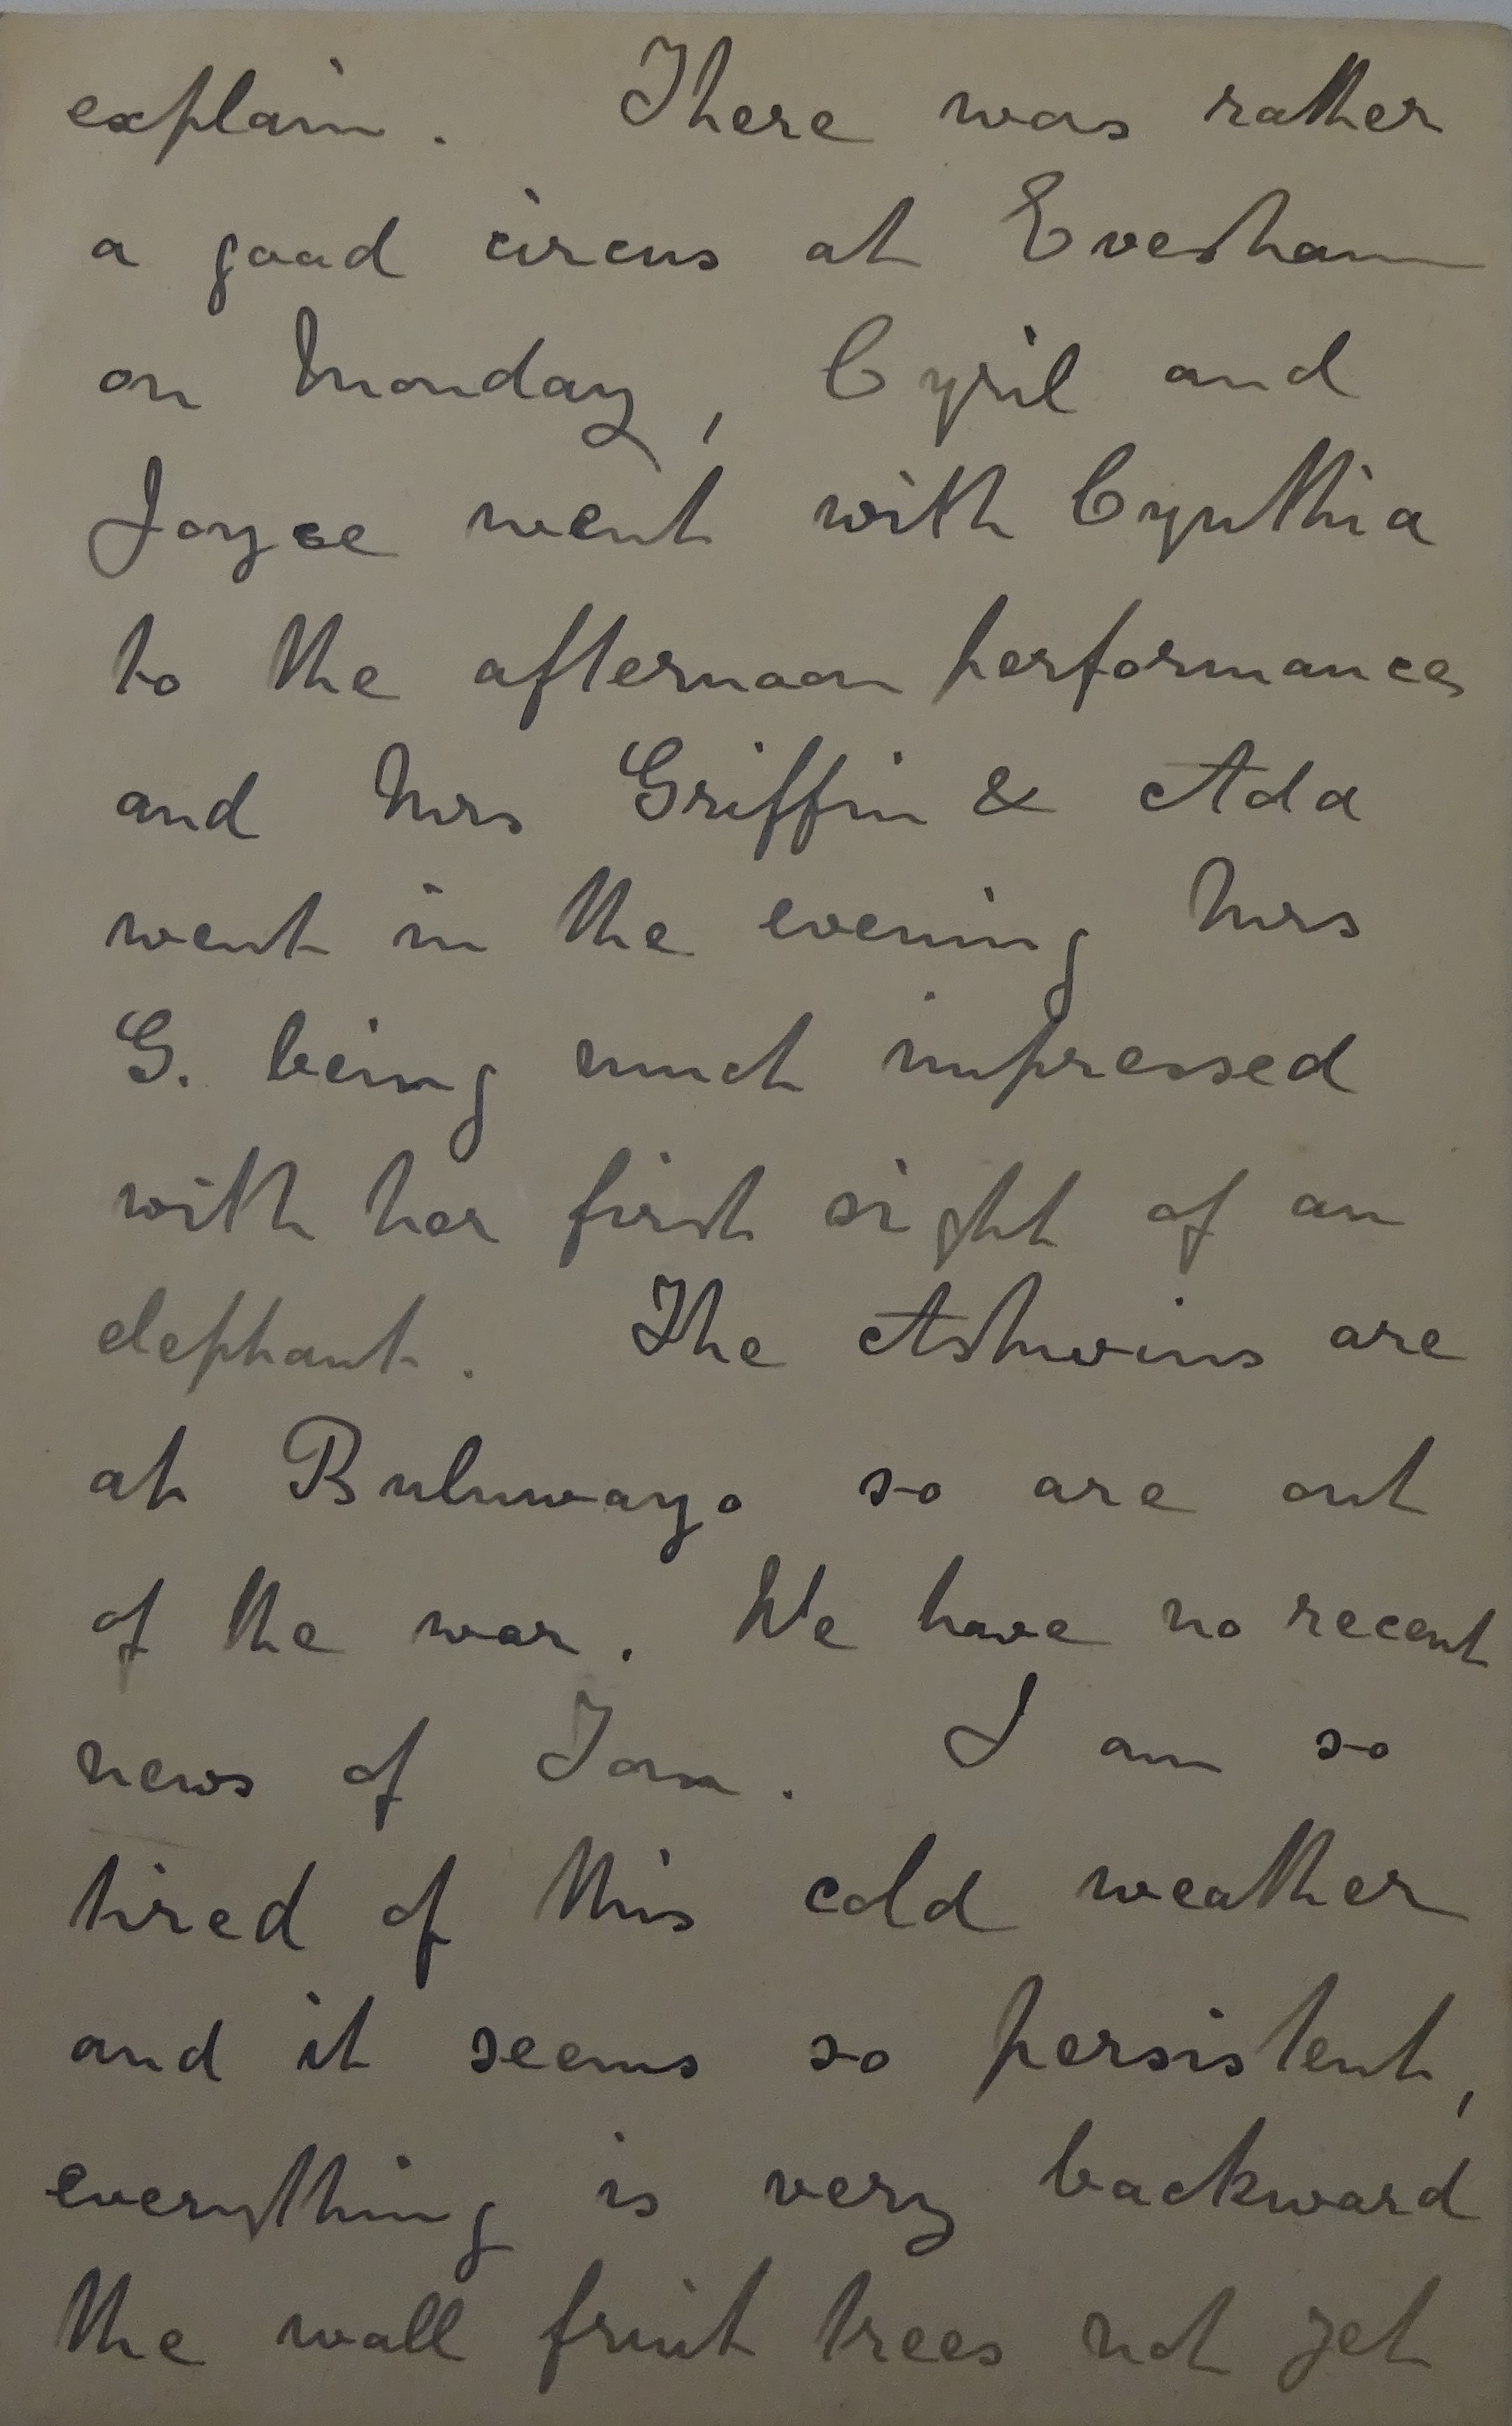 explain. There was rather
a good circus at Evesham
on Monday, Cyril and
Joyce went with Cynthia
to the afternoon performance,
and Mrs Griffin & Ada
went in the evening Mrs
G. being much impressed
with her first sight of an
elephant. The Ashwins are
at Buluwayo so are out
of the war. We have no recent
news of Tom. I am so
tired of this cold weather
and it seems so persistent,
everything is very backward
the wall fruit trees not yet